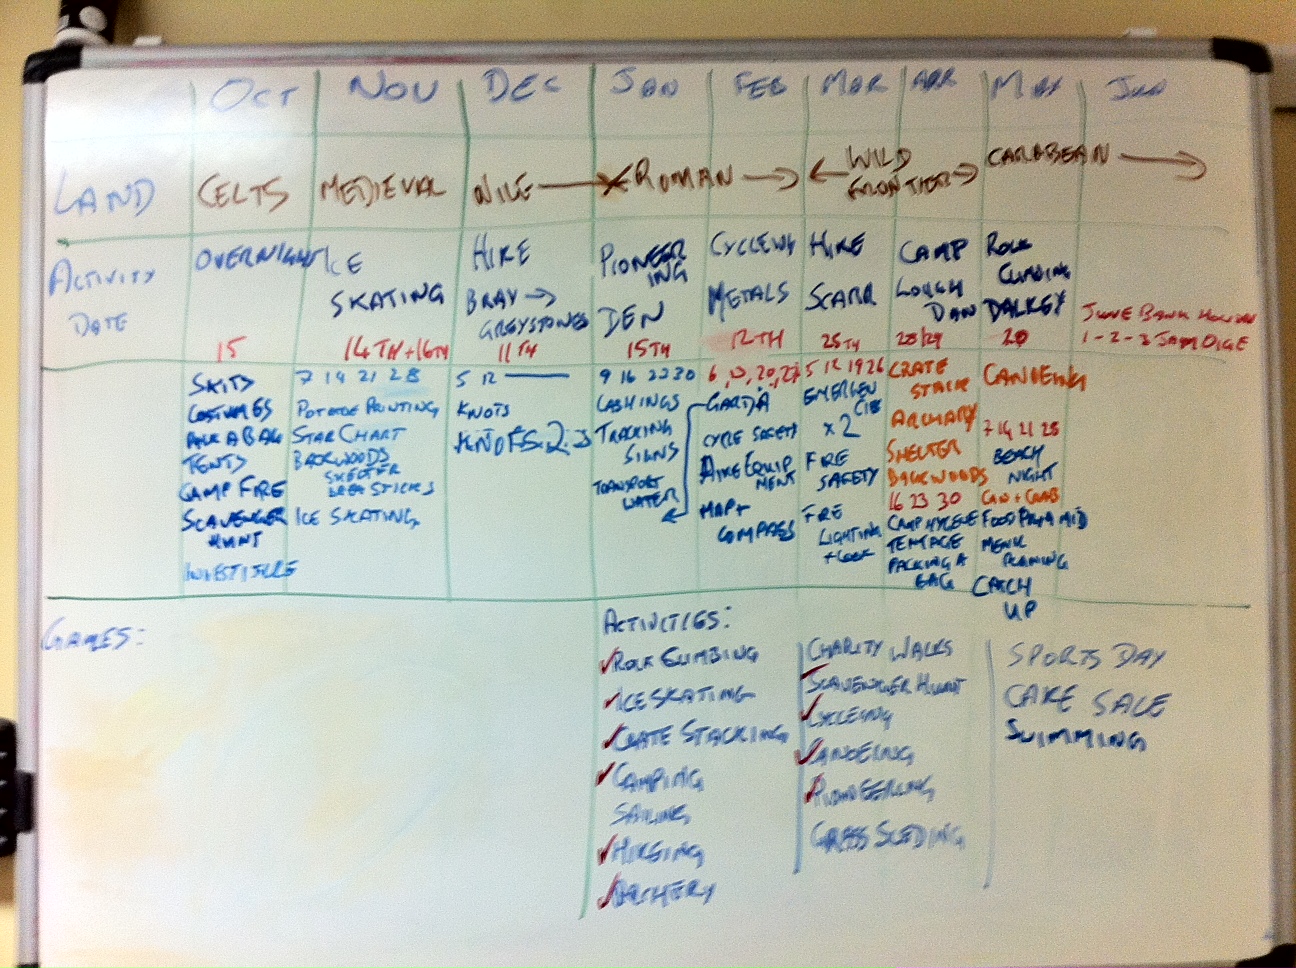 OCT NOV DEC JAN FEB MAR APR MAY JUN
LAND CELTS MEDIEVAL NILE → ROMAN → ← WILD FRONTIER → CARABEAN →
ACTIVITY
DATE
OVERNIGHT
15
ICE
SKATING
14TH + 16TH
HIKE
BRAY →
GREYSTONES
11TH
PIONEER
ING
DEN
15TH
CYCLEING
METALS
12TH
HIKE
SCARR
25TH
CAMP
LOUGH
DAN
28/29
ROCK
CLIMBING
DALKEY
20
JUNE BANK HOLIDAY
1-2-3 JAMOIGE
SKITS
COSTUMES
PACK A BAG
TENTS
CAMP FIRE
SCAVENGER
HUNT
INVESTITURE
7 14 21 28
POTATOE PRINTING
STAR CHART
BACKWOODS
SHELTER
BREAD STICKS
ICE SKATING
5 12
KNOTS
KNOTS 2
9 16 23 30
LASHINGS
TRACKING
SIGNS
TRANSPORT
WATER
6, 13, 20, 27
GARDA
CYCLE SAFETY
HIKE EQUIP
MENT
MAP +
COMPASS
5 12 19 26
EMERGEN
CIES
x 2
FIRE
SAFETY
FIRE
LIGHTING
+ COOK
CRATE
STACK
ARCHARY
SHELTER
BACKWOODS
16 23 30
CAMP HYGENE
TENTAGE
PACKING A
BAG
CANOEING
7 14 21 28
BEACH
NIGHT
FOOD PYRAMID
MENU
PLANING
CATCH
UP
GAMES:
ACTIVITIES:
✓ROCK CLIMBING
✓ICE SKATING
✓CRATE STACKING
✓CAMPING
SAILING
✓HIKEING
✓ARCHERY
CHARITY WALKS
SCAVENGER HUNT
✓CYCLEING
✓CANOEING
✓PIONEERING
GRASS SLEDING
SPORTS DAY
CAKE SALE
SWIMMING